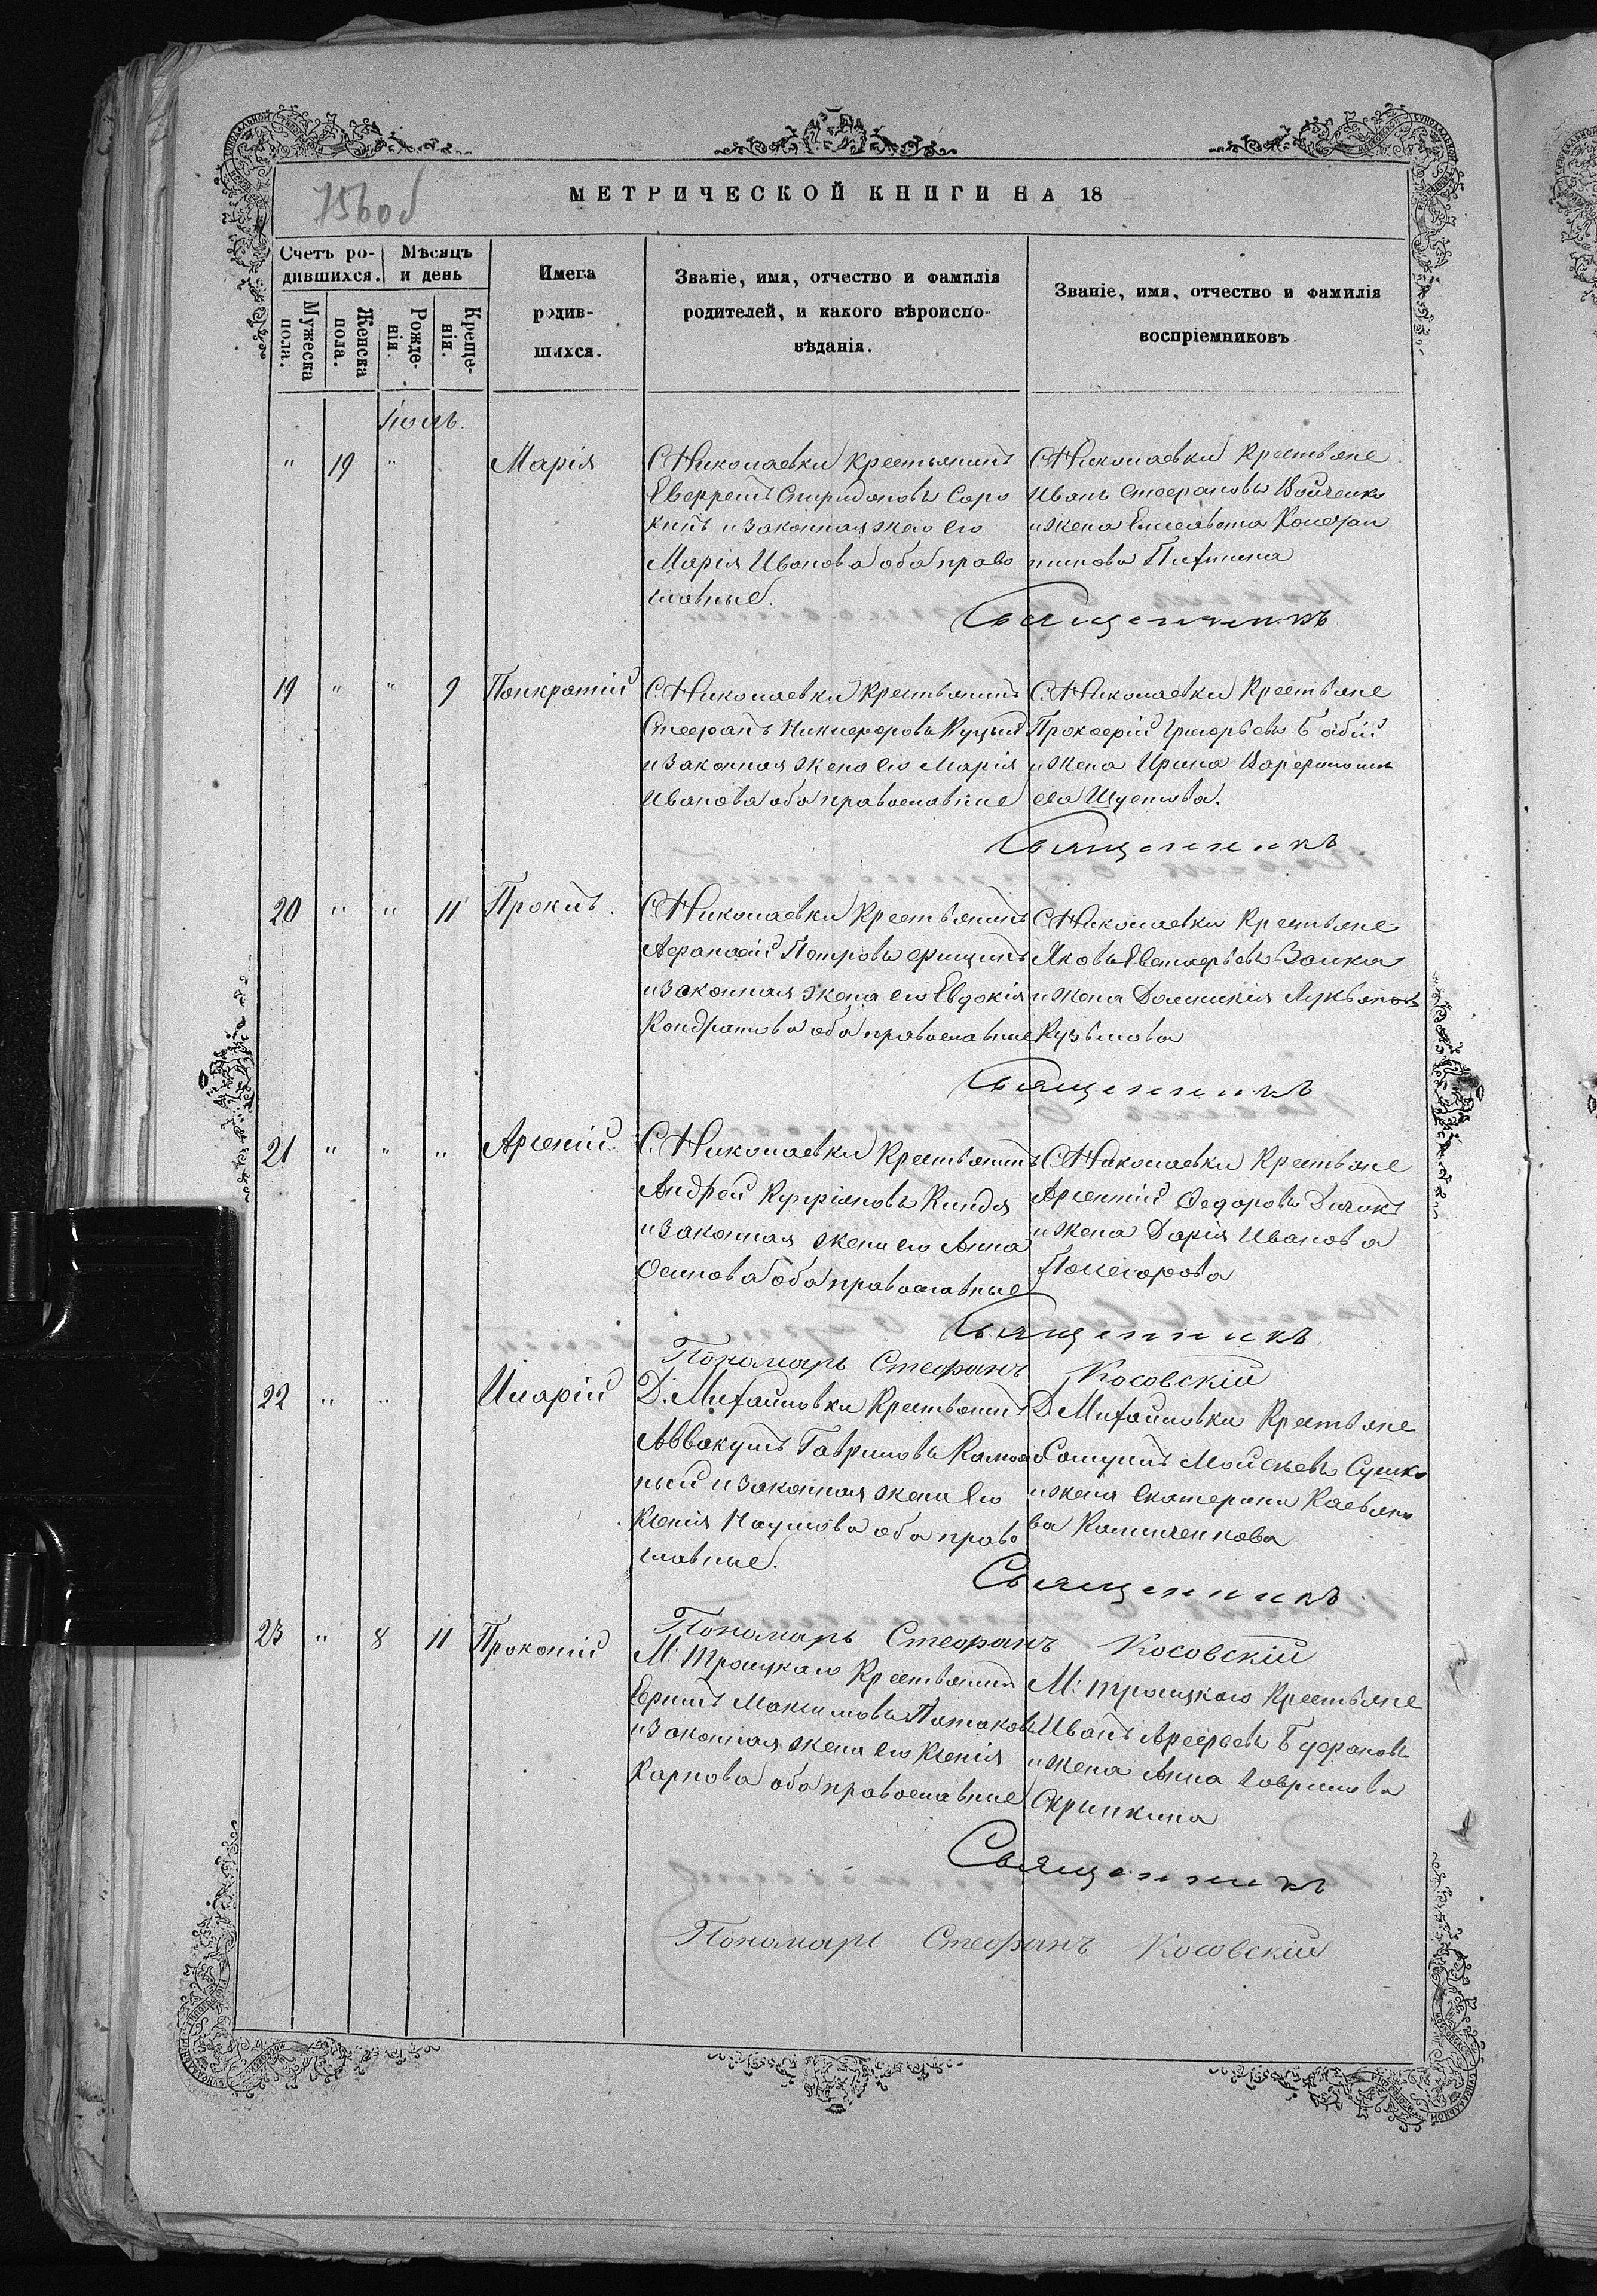 756 об
МЕТРИЧЕСКОЙ КНИГИ НА 18
Счетъ ро-
дившихся.
Мѣсяцъ
и день
Мужеска
пола.
Женска
пола.
Рожде-
нія.
Креще-
нія.
Имена
родив-
шихся.
Званіе, имя, отчество и фамилія
родителей, и какого вѣроиспо-
вѣданія.
Званіе, имя, отчество и фамилія
воспріемниковъ
Іюль.
" 19 " Марія
С. Николаевки Крестьянинъ
Спиридоновъ Соро
кинъ и законная жена его
Марія Иванова оба право
славные.
С. Николаевки Крестьяне
Иванъ Стефановъ Войченко
и жена Елисавета
Священникъ
19 " " 9 Панкратій
С. Николаевки Крестьянинъ
Стефанъ Никифоровъ Куцый
и законная жена его Марія
Иванова оба православные
С. Николаевки Крестьяне
Прокофій Григорьевъ Бабій
и жена Ирина
ева Шустова.
Священникъ
20 " " 11 Проклъ.
С. Николаевки Крестьянинъ
Афанасій Петровъ
и законная жена его Евдокія
Кондратова оба православные
С. Николаевки Крестьяне
Яковъ Заика
и жена Домникія Лукьянова
Кузьмова
Священникъ
21 " " " Арсеній.
С. Николаевки Крестьянинъ
Андрей Купріяновъ Киндя
и законная жена его Анна
Осипова оба православные
С. Николаевки Крестьяне
Арсентій Федоровъ Дьячокъ
и жена Дарія Иванова
Священникъ
Пономарь Стефанъ Косовскій
22 " " Иларій
Д. Михайловки Крестьянинъ
Аввакумъ Гавриловъ
и законная жена его
Ксенія Наумова оба право
славные.
Д. Михайловки Крестьяне
Самуилъ Моисеевъ Сушко
и жена Екатерина Касьяно
ва Каличенкова
Священникъ
Пономарь Стефанъ Косовскій
23 " 8 11 Прокопій
М. Троицкаго Крестьянинъ
Ефимъ Максимовъ Патаковъ
и законная жена его Ксенія
Карпова оба православные
М. Троицкаго Крестьяне
Иванъ Арефьевъ
и жена Анна Гаврилова
Скрыпкина
Священникъ
Пономарь Стефанъ Косовскій